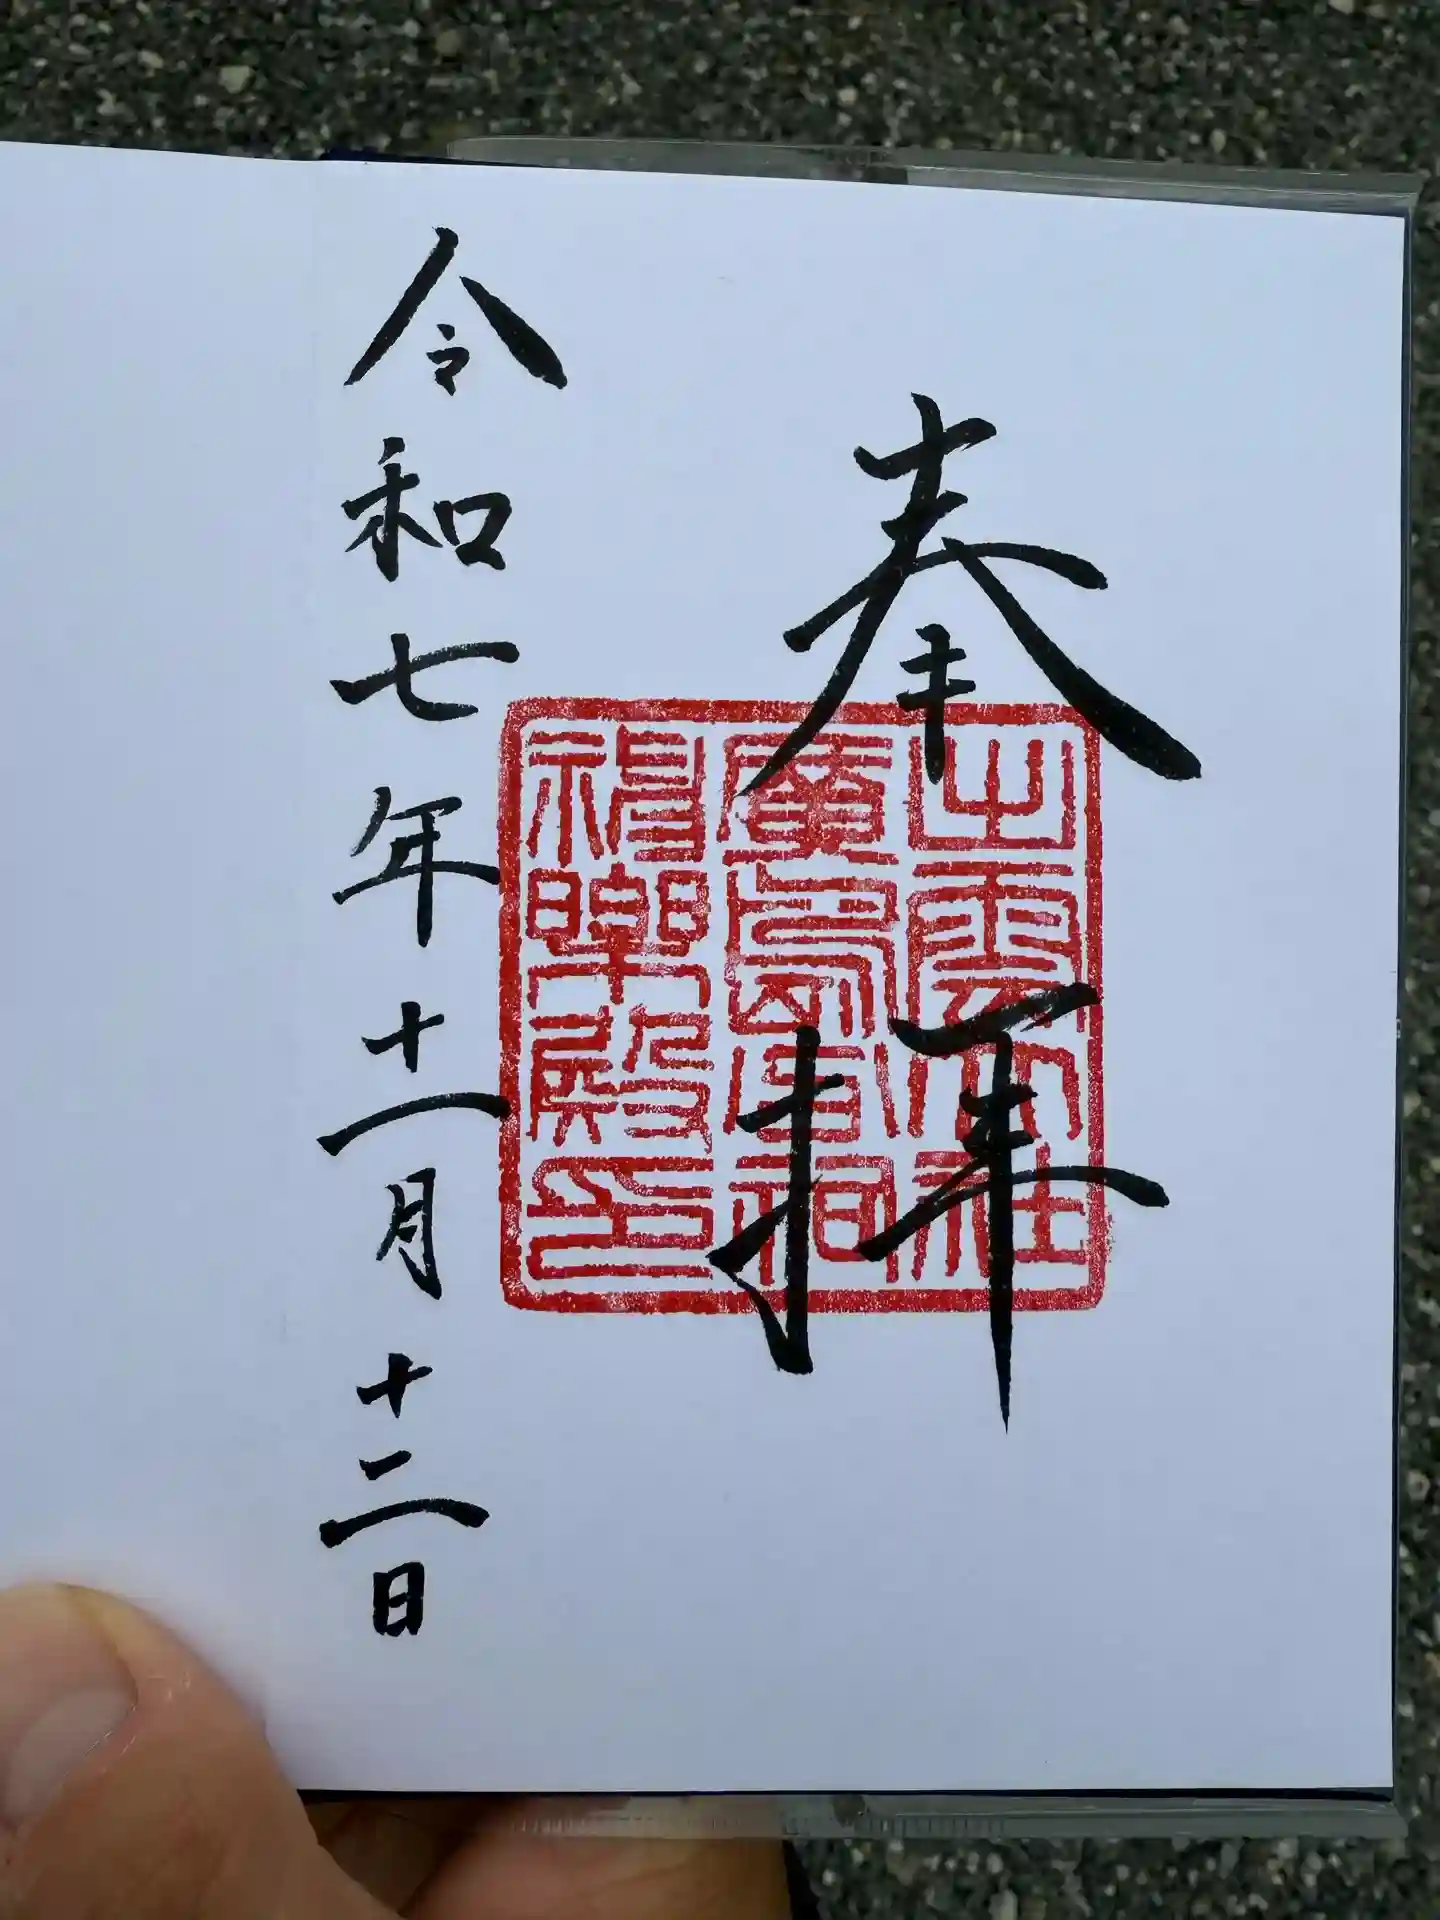 奉拝
出雲大社
廣島分祠
神楽殿印
令和七年十一月十二日